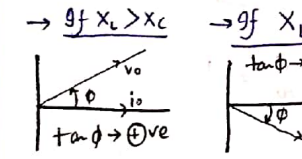 → If X_L > X_C
v₀
ϕ
i₀
tan ϕ → ⊕ve
→ If X_L
tan ϕ →
ϕ